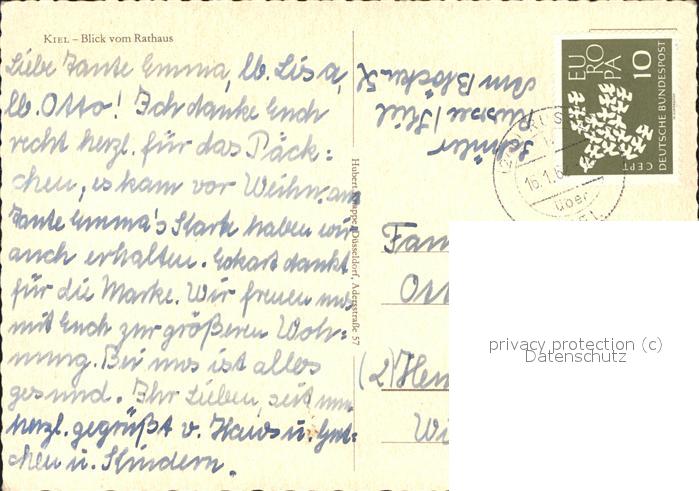 KIEL – Blick vom Rathaus
Liebe Tante Emma, lb. Lisa,
lb. Otto! Ich danke Euch
recht herzl. für das Päck-
chen, es kam vor Weihn. an
Tante Emma's Karte haben wir
auch erhalten. Eckart dankt
für die Marke. Wir freuen uns
mit Euch zur größeren Woh-
nung. Bei uns ist alles
gesund. Ihr Lieben, seit nun
herzl. gegrüßt v. Hans u. Gret-
chen u. Kindern.
Hubert Knappe, Düsseldorf, Adersstraße 57
Schüler
Russee/Kiel
Am Blöcken
EUROPA
10
DEUTSCHE BUNDESPOST
CEPT
16.1.6
über
Fam
Ott
(2) Hem
Wi
privacy protection (c)
Datenschutz